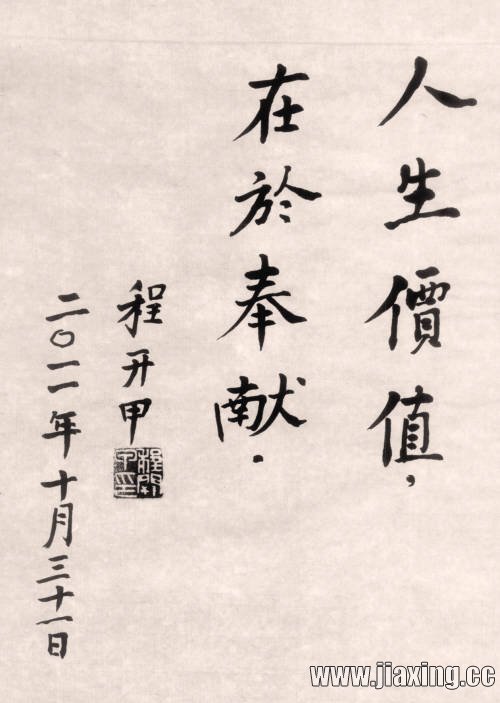 人生價值，
在於奉献．
程开甲
程開甲印
二〇一一年十月三十一日
www.jiaxing.cc